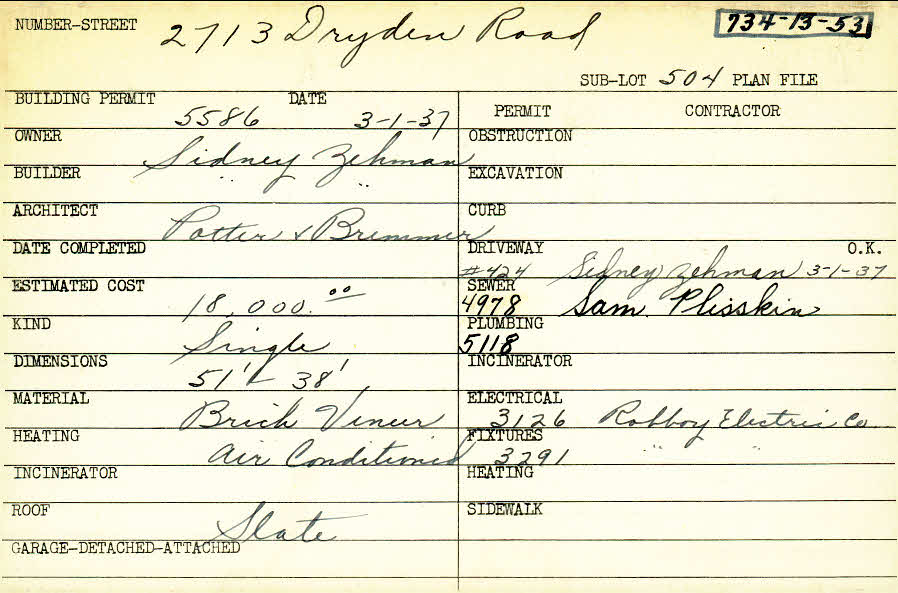 NUMBER-STREET 2713 Dryden Road 734-13-53
SUB-LOT 504 PLAN FILE
BUILDING PERMIT 5586 DATE 3-1-37
OWNER Sidney Zehman
BUILDER " "
ARCHITECT Potter & Bremmer
DATE COMPLETED
ESTIMATED COST 18,000.00
KIND Single
DIMENSIONS 51' - 38'
MATERIAL Brick Vineer
HEATING Air Conditioned
INCINERATOR
ROOF Slate
GARAGE-DETACHED-ATTACHED
PERMIT CONTRACTOR
OBSTRUCTION
EXCAVATION
CURB
DRIVEWAY O.K.
#424 Sidney Zehman 3-1-37
SEWER
4978 Sam Plisskin
PLUMBING
5118
INCINERATOR
ELECTRICAL
3126 Robboy Electric Co
FIXTURES
3291 " "
HEATING
SIDEWALK